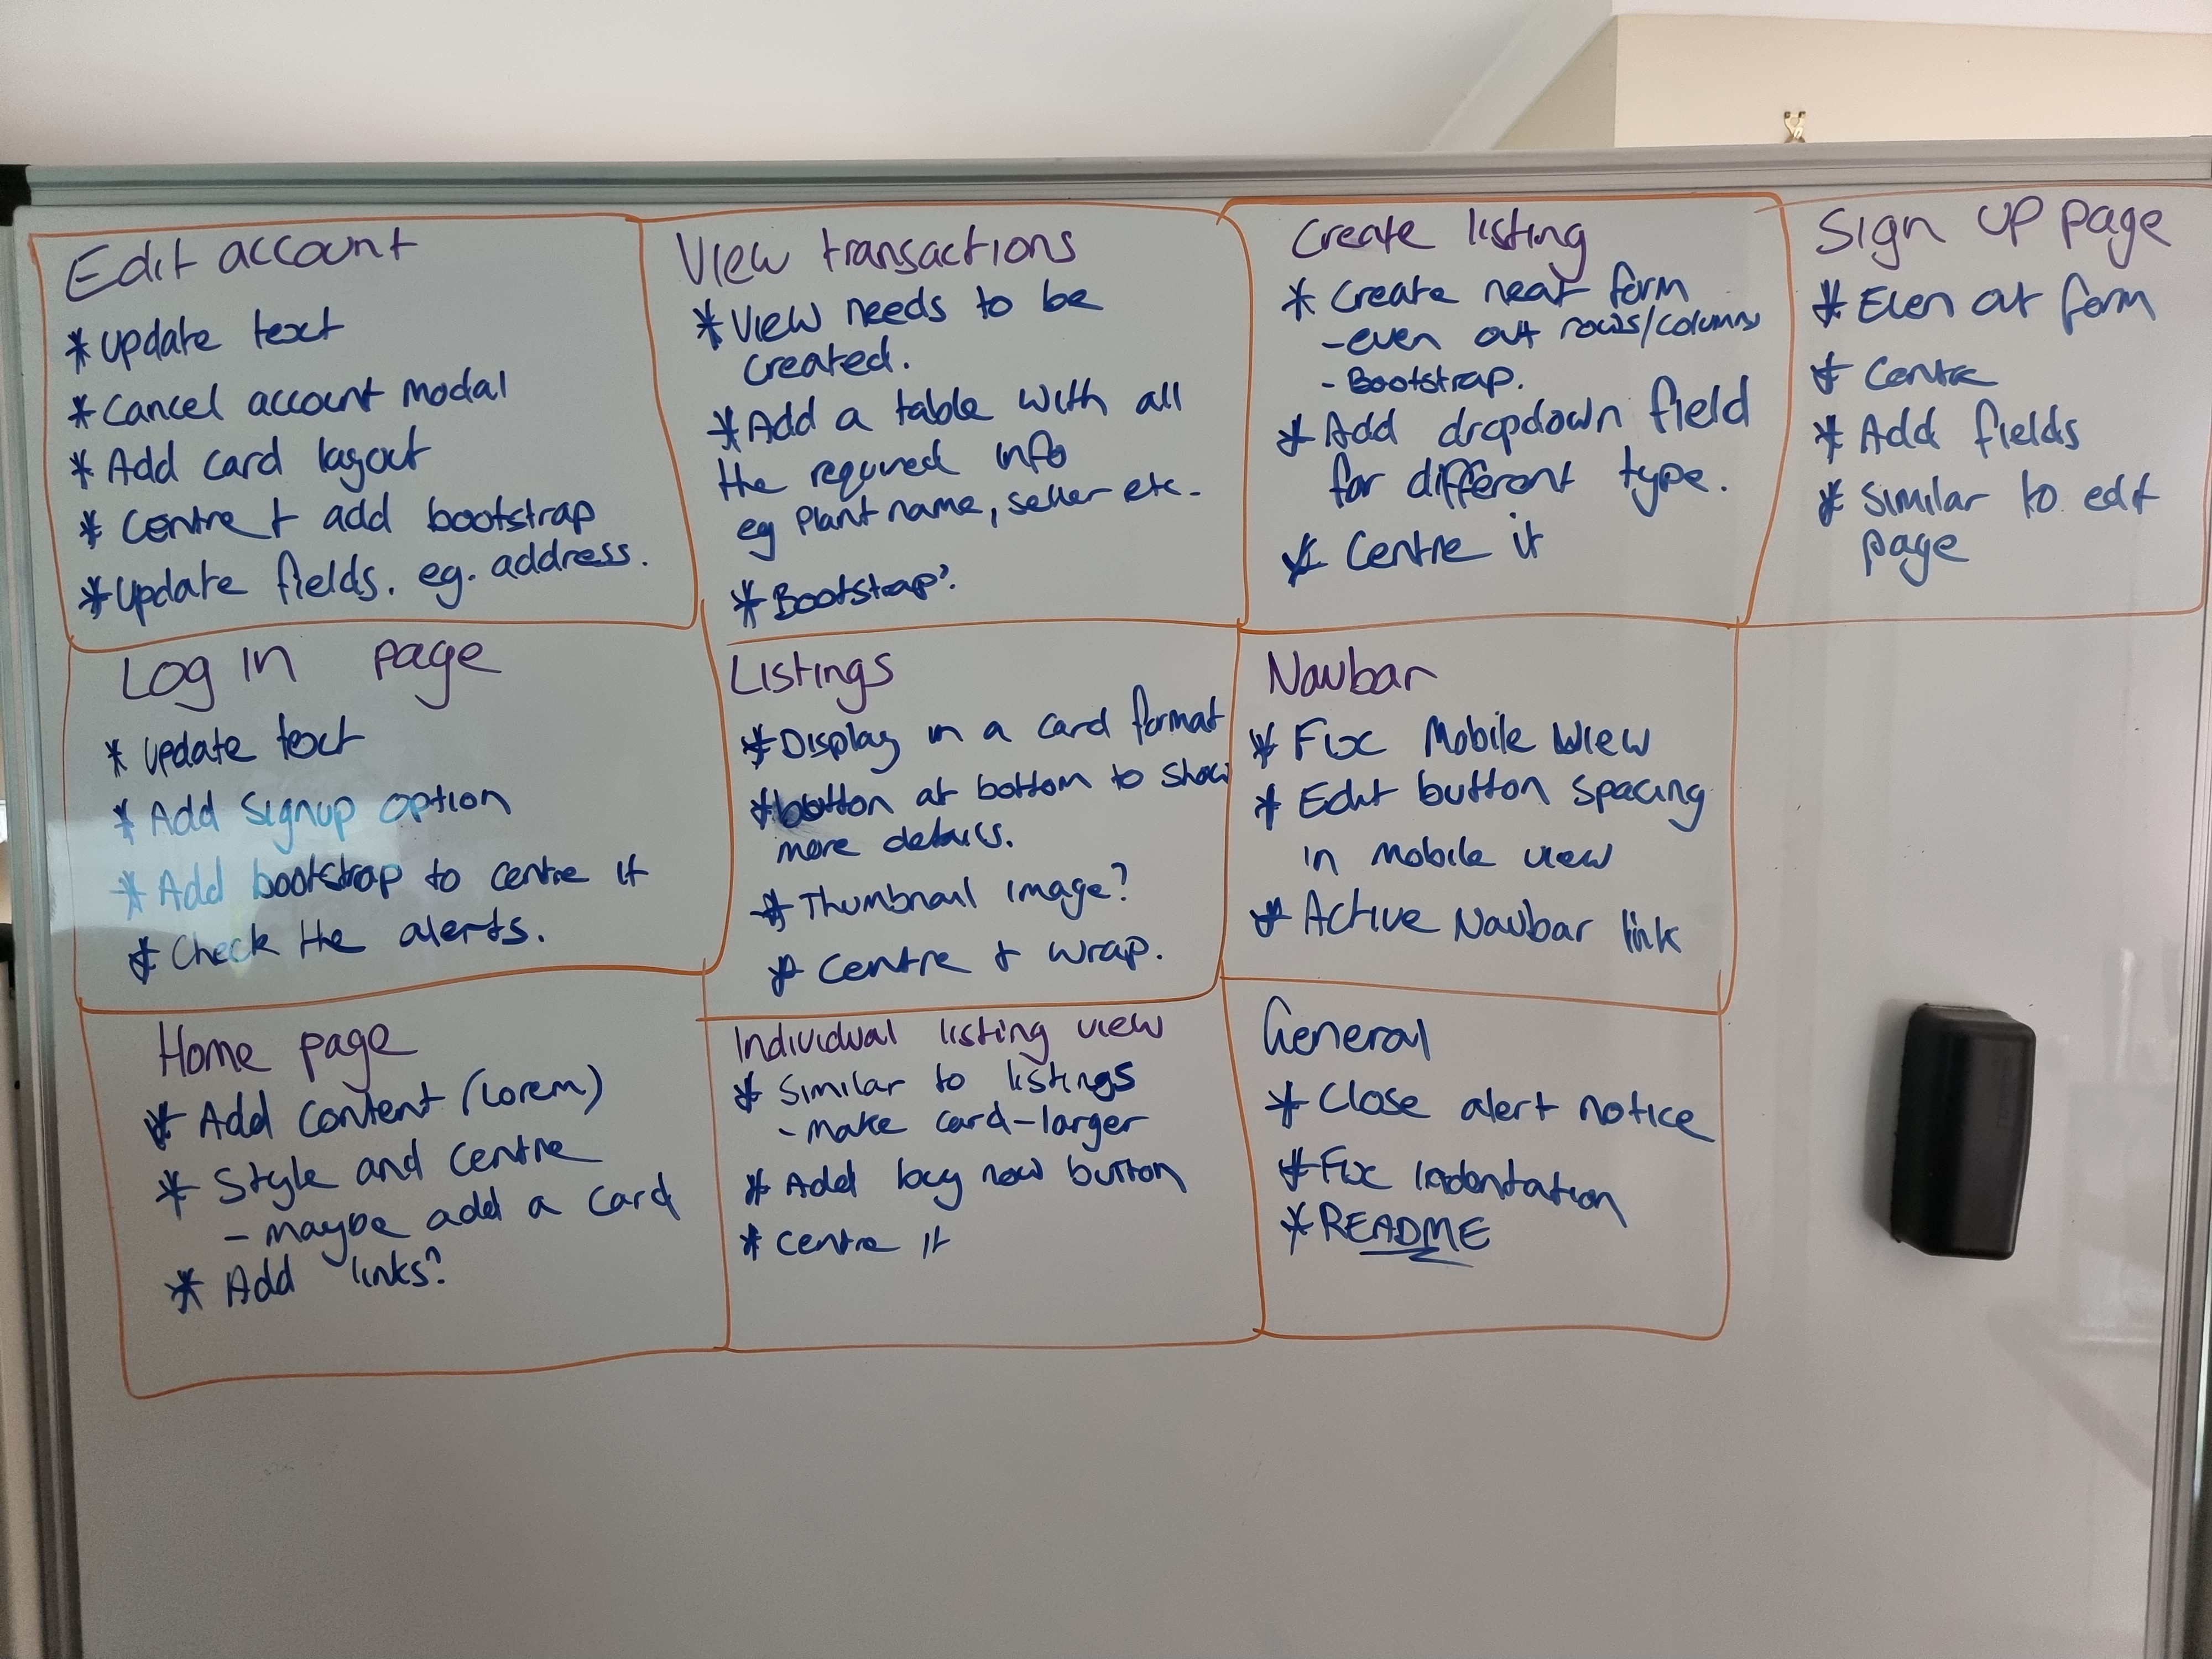 Edit account
* Update text
* Cancel account modal
* Add card layout
* Centre + add bootstrap
* Update fields. eg. address.
View transactions
* View needs to be
created.
* Add a table with all
the required info
eg Plant name, seller etc.
* Bootstrap?
Create listing
* Create neat form
- even out rows/columns
- Bootstrap.
* Add dropdown field
for different type.
* Centre it
Sign up page
* Even out form
* Centre
* Add fields
* Similar to edit
page
Log in page
* Update text
* Add signup option
* Add bootstrap to centre it
* Check the alerts.
Listings
* Display in a card format
* button at bottom to show
more details.
* Thumbnail image?
* Centre + wrap.
Navbar
* Fix Mobile View
* Edit button spacing
in mobile view
* Active Navbar link
Home page
* Add content (Lorem)
* Style and centre
- maybe add a card
* Add links?
Individual listing view
* Similar to listings
- make card - larger
* Add buy now button
* Centre it
General
* Close alert notice
* Fix indentation
* README